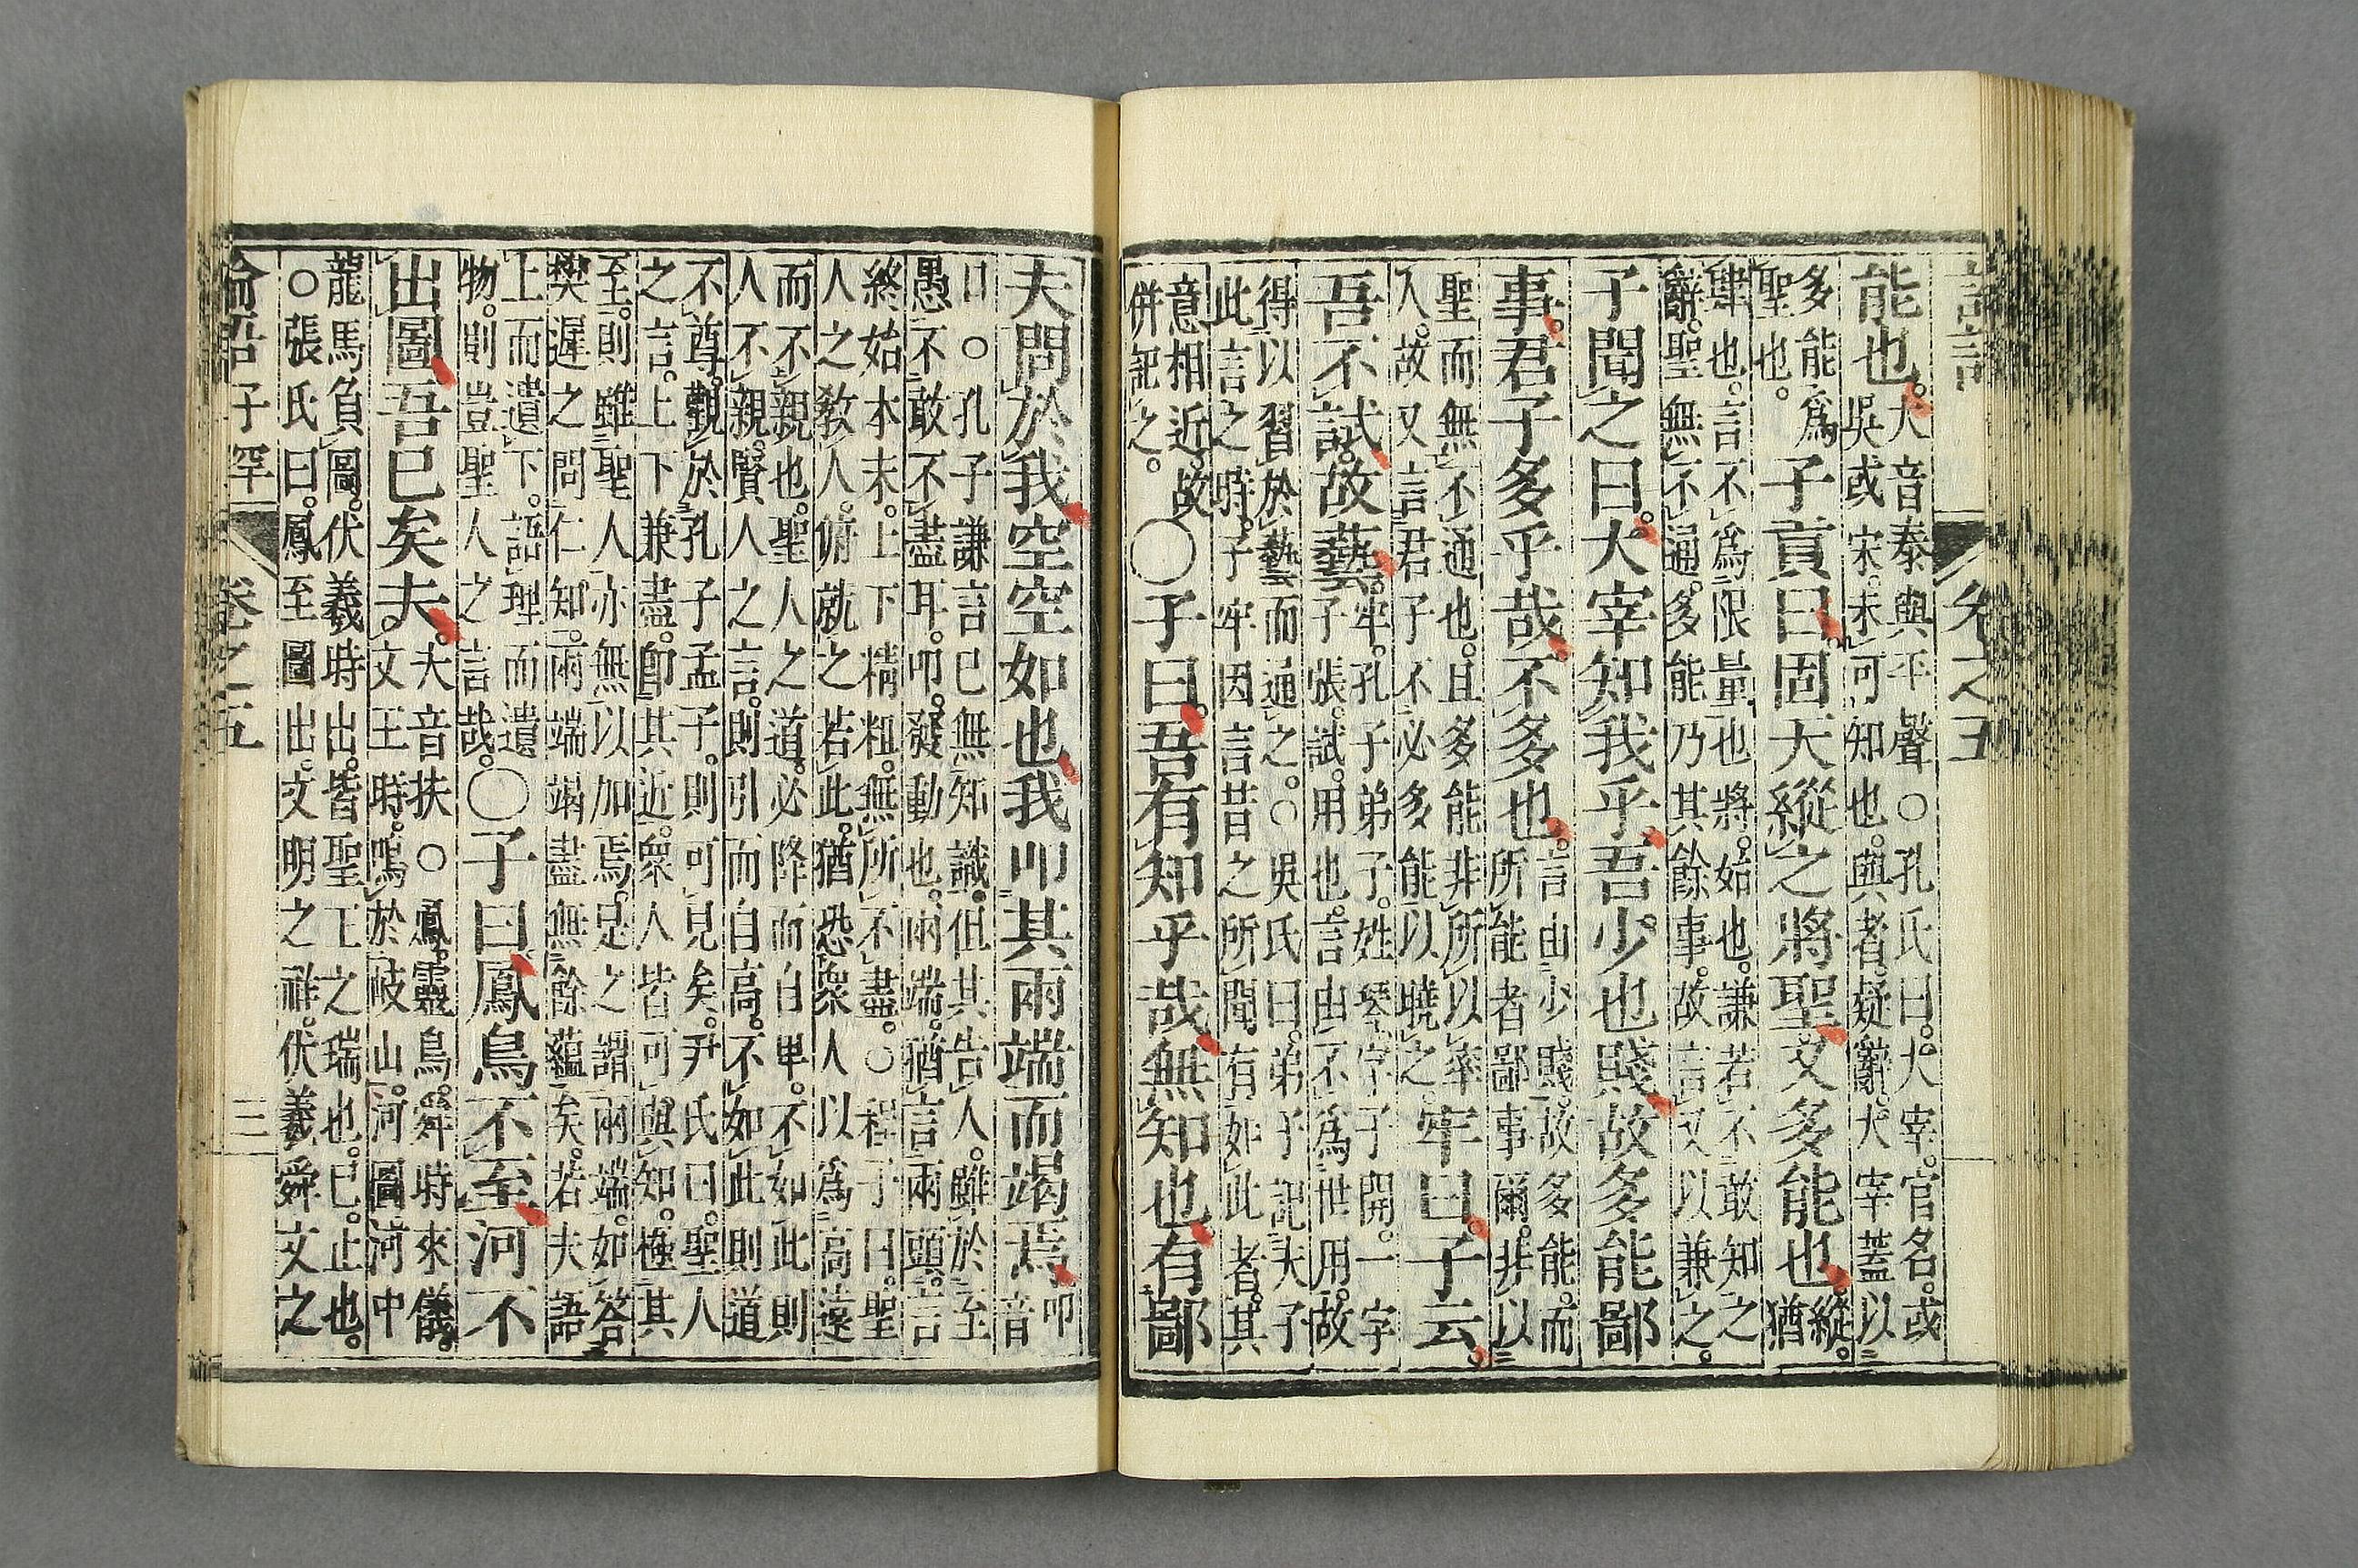 卷之五
能也。
大音泰與平聲○孔氏曰。大宰。官名。或
吳或宋。未可知也。與者。疑辭。大宰蓋以
多能爲
聖也。
子貢曰。固天縱之將聖又多能也
縱。
猶
肆也。言不爲限量也將。殆也。謙若不敢知之
辭。聖無不通。多能乃其餘事。故言又以兼之。
子聞之曰。大宰知我乎。吾少也賤故多能鄙
事。君子多乎哉。不多也。
言由少賤。故多能。而
所能者鄙事爾。非以
聖而無不通也。且多能非所以率
人。故又言君子不必多能以曉之。
牢曰。子云。
吾不試。故藝。
牢。孔子弟子。姓琴。字子開。一字
子張。試。用也。言由不爲世用。故
得以習於藝而通之。○吳氏曰。弟子記夫子
此言之時。子牢因言昔之所聞有如此者。其
意相近。故
併記之。
○子曰。吾有知乎哉無知也。有鄙
夫問於我空空如也我叩其兩端而竭焉
叩
音
口。○孔子謙言已無知識。但其告人。雖於至
愚不敢不盡耳。叩。發動也。兩端。猶言兩頭。言
終始本末。上下精粗。無所不盡。○程子曰。聖
人之敎人。俯就之若此。猶恐衆人以爲高遠
而不親也。聖人之道。必降而自卑。不如此則
人不親。賢人之言。則引而自高。不如此則道
不尊。觀於孔子孟子。則可見矣。尹氏曰。聖人
之言。上下兼盡。卽其近。衆人皆可與知。極其
至。則雖聖人亦無以加焉。是之謂兩端。如答
樊遲之問仁知。兩端竭盡無餘蘊矣。若夫語
上而遺下。語理而遺
物。則豈聖人之言哉。
○子曰。鳳鳥不至河不
出圖吾已矣夫。
夫音扶○鳳。靈鳥。舜時來儀。
文王時。鳴於岐山。河圖。河中
龍馬負圖。伏羲時出。皆聖王之瑞也。已。止也。
○張氏曰。鳳至圖出。文明之祥。伏羲舜文之
論語子罕 卷之五 三